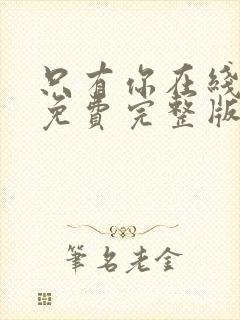 只有你在綫
免費完整版
筆名老金